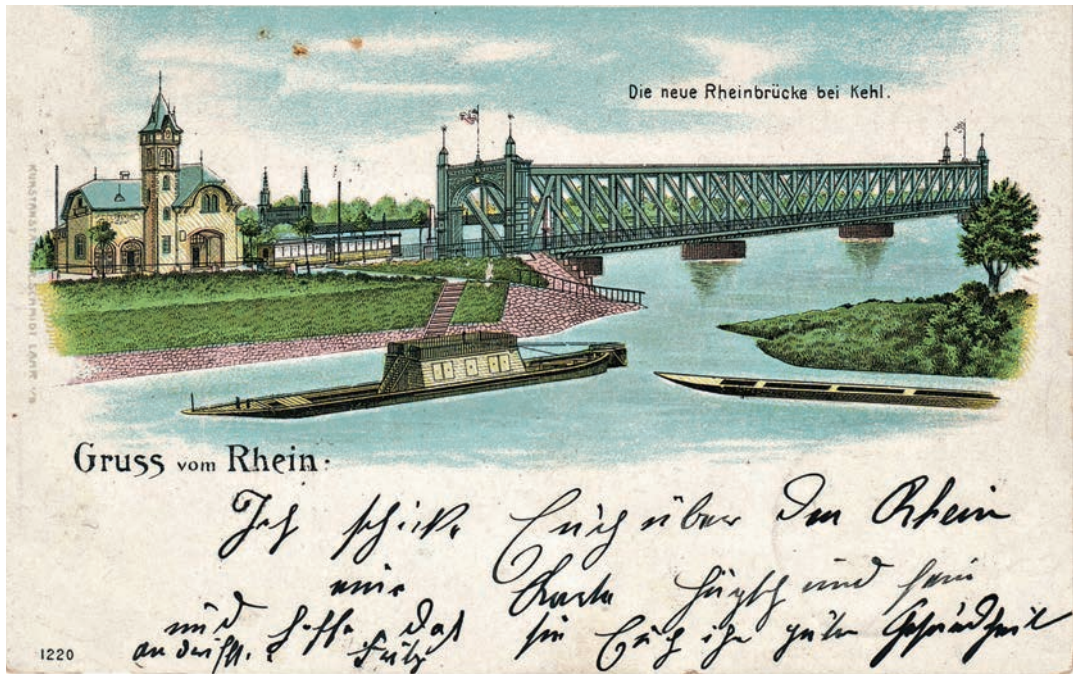 Die neue Rheinbrücke bei Kehl.
KUNSTANSTALT SCHMIDT LAHR
Gruss vom Rhein.
Ich schicke Euch über den Rhein
eine Karte hübsch und fein
und hoffe das sie Euch in guter Gesundheit
antrifft. Fritz
1220